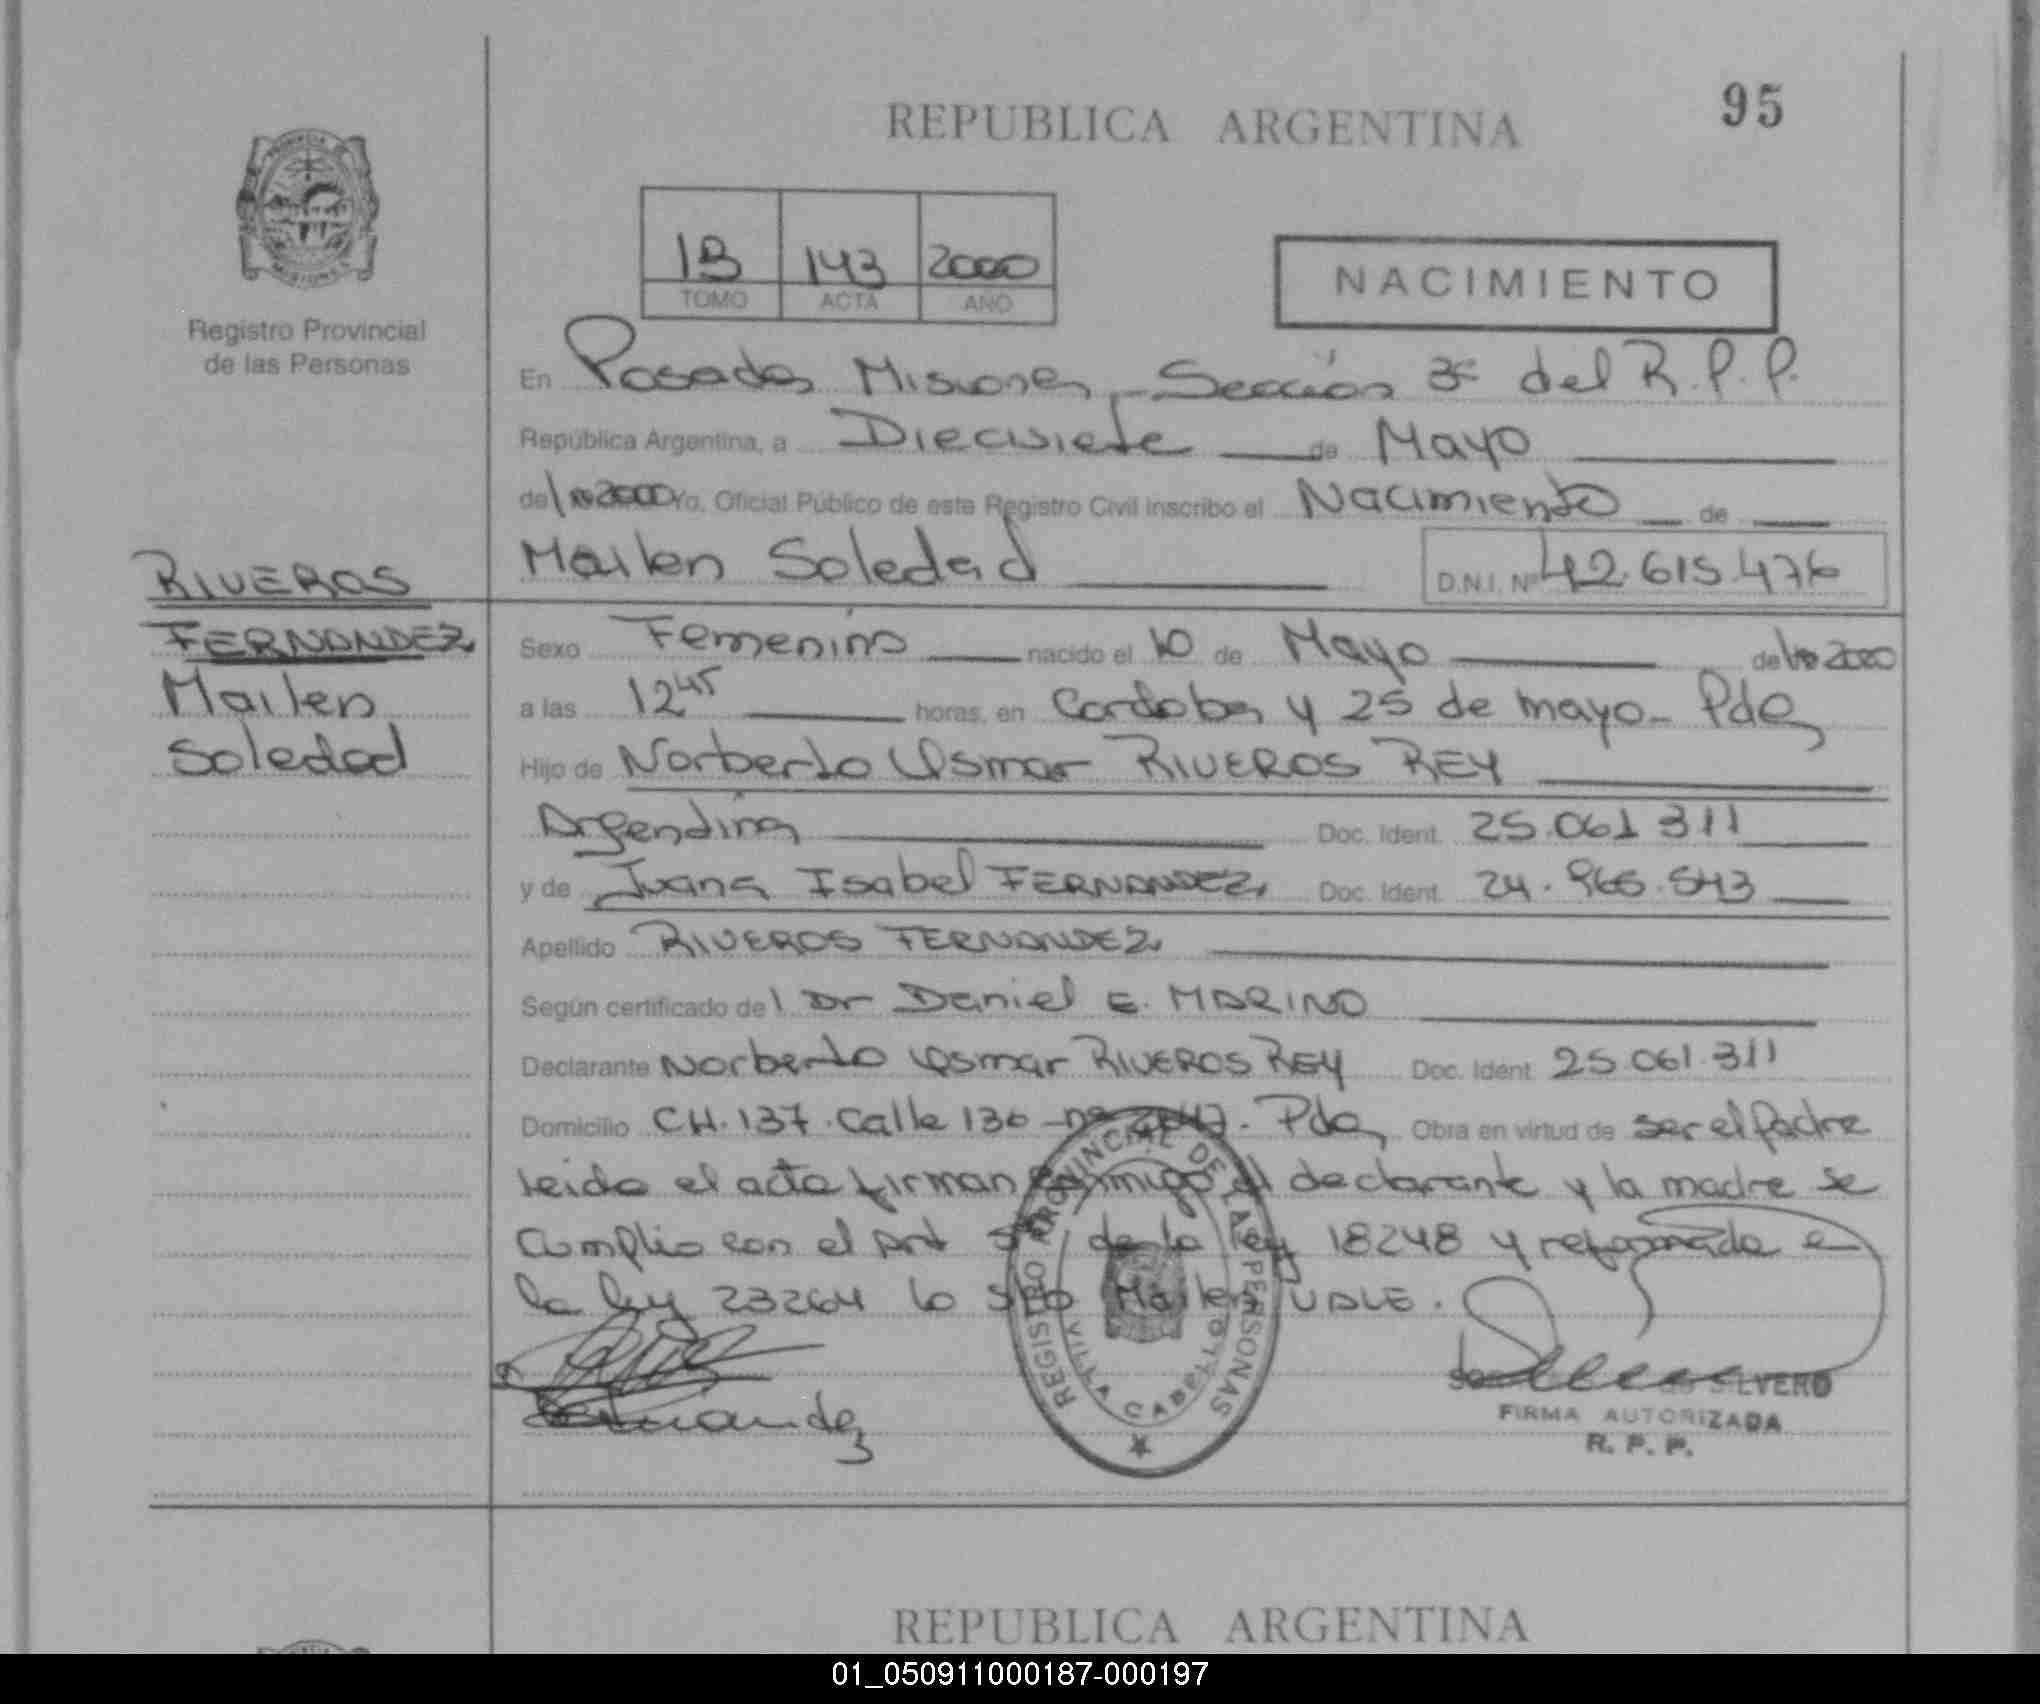 REPUBLICA ARGENTINA
95
1B 143 2000
TOMO ACTA AÑO
NACIMIENTO
Registro Provincial
de las Personas
En Posadas Misiones - Sección 3ª del R.P.P.
República Argentina, a Diecisiete de Mayo
del 2000 Yo, Oficial Público de este Registro Civil inscribo el Nacimiento de
Mailen Soledad D.N.I. Nº 42.615.476
RIVEROS
FERNANDEZ
Mailen
Soledad
Sexo Femenino nacido el 10 de Mayo del 2000
a las 12 45 horas, en Cordoba y 25 de mayo - Pdas
Hijo de Norberto Osmar RIVEROS REY
Argentina Doc. Ident. 25.061.311
y de Juana Isabel FERNANDEZ Doc. Ident. 24.965.543
Apellido RIVEROS FERNANDEZ
Según certificado del Dr Daniel E. MARINO
Declarante Norberto Osmar RIVEROS REY Doc. Ident 25.061.311
Domicilio CH. 137. Calle 130 - Pdas Obra en virtud de ser el padre
leida el acta firman conmigo el declarante y la madre se
cumplio con el Art de la ley 18248 y reformada en
la ley 23264 lo Mailen VALE.
Fernandez
REGISTRO PROVINCIAL DE LAS PERSONAS
VILLA CABELLO
SILVERO
FIRMA AUTORIZADA
R. P. P.
REPUBLICA ARGENTINA
01_050911000187-000197